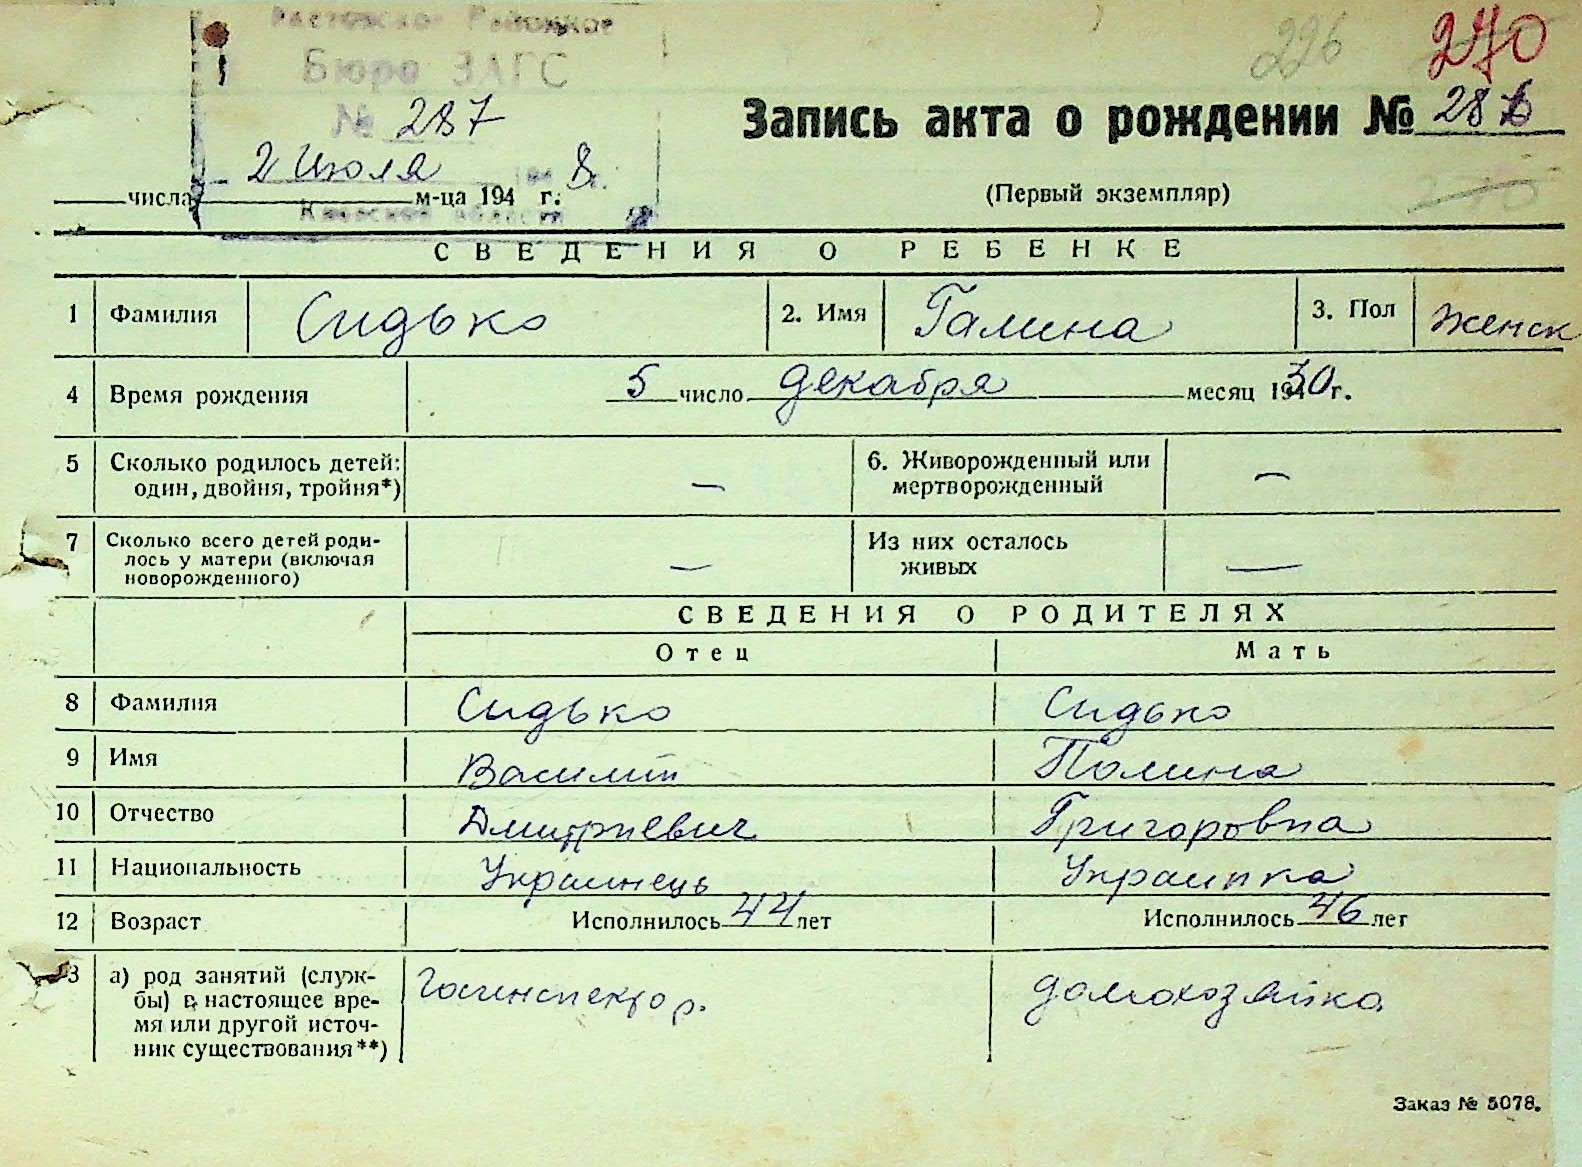 Районное
226
270
Бюро ЗАГС
№ 287
Запись акта о рождении № 28
2 Июля 8
числа м-ца 194 г.
(Первый экземпляр)
Киевской области
СВЕДЕНИЯ О РЕБЕНКЕ
1 Фамилия Сидько 2. Имя Галина 3. Пол женск
4 Время рождения 5 число декабря месяц 1930 г.
5 Сколько родилось детей: — 6. Живорожденный или —
один, двойня, тройня*) мертворожденный
7 Сколько всего детей роди- — Из них осталось —
лось у матери (включая живых
новорожденного)
СВЕДЕНИЯ О РОДИТЕЛЯХ
Отец Мать
8 Фамилия Сидько Сидько
9 Имя Василий Полина
10 Отчество Дмитриевич Григоровна
11 Национальность Украинець Украинка
12 Возраст Исполнилось 44 лет Исполнилось 46 лет
13 а) род занятий (служ- Госинспектор. домохозяйка
бы) в настоящее вре-
мя или другой источ-
ник существования**)
Заказ № 5078.